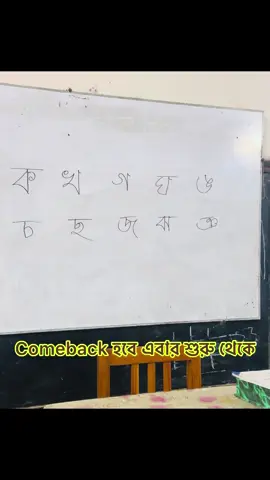 ক খ গ ঘ ঙ
চ ছ জ ঝ ঞ
Comeback হবে এবার শুরু থেকে